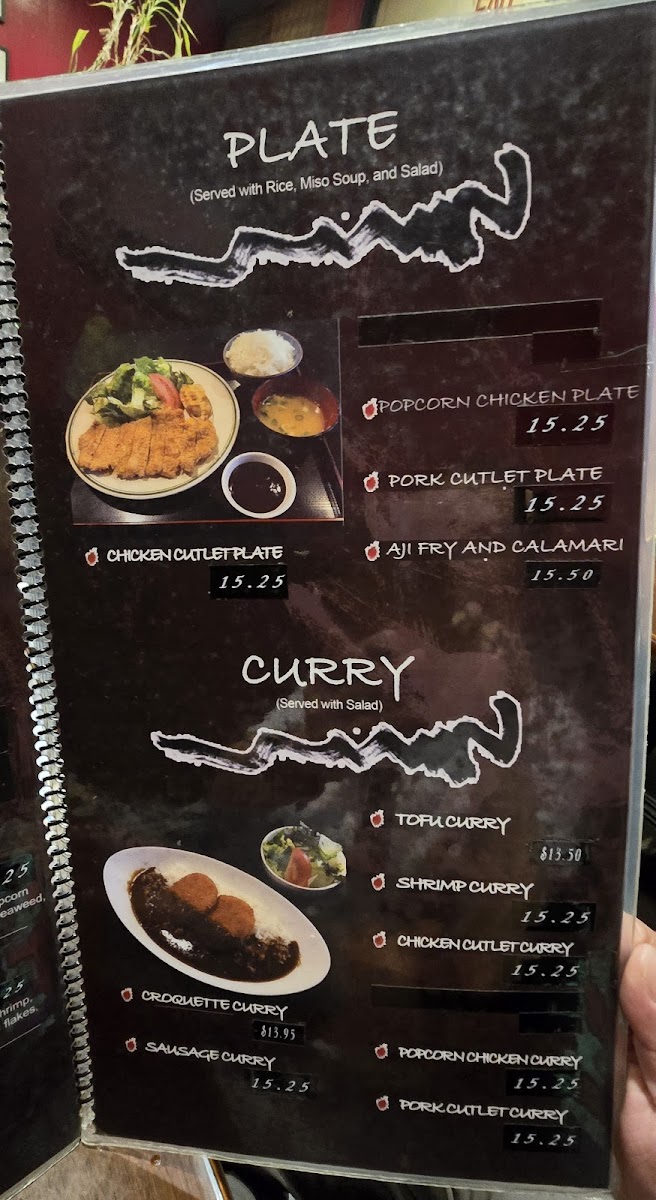 EXIT
PLATE
(Served with Rice, Miso Soup, and Salad)
CHICKEN CUTLET PLATE
15.25
POPCORN CHICKEN PLATE
15.25
PORK CUTLET PLATE
15.25
AJI FRY AND CALAMARI
15.50
CURRY
(Served with Salad)
CROQUETTE CURRY
$13.95
SAUSAGE CURRY
15.25
TOFU CURRY
$13.50
SHRIMP CURRY
15.25
CHICKEN CUTLET CURRY
15.25
POPCORN CHICKEN CURRY
15.25
PORK CUTLET CURRY
15.25
25
pcorn
eaweed,
25
hrimp,
flakes,